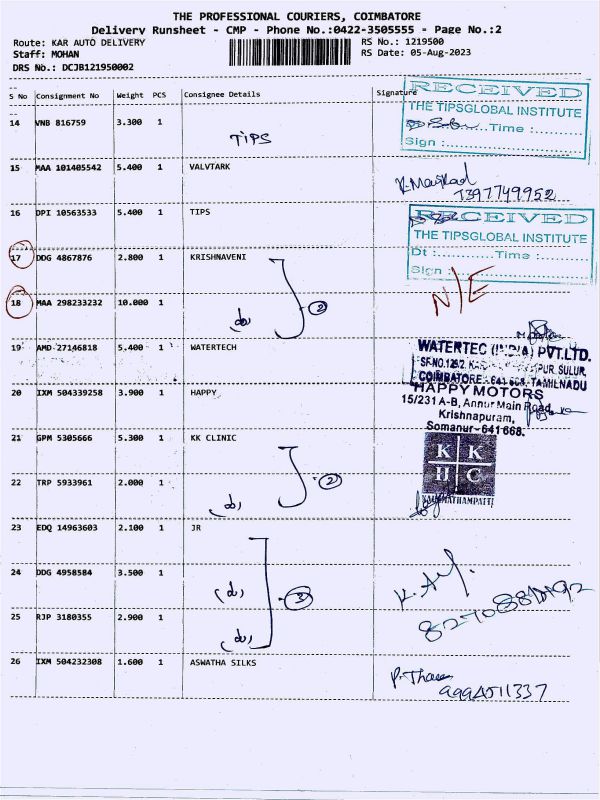 THE PROFESSIONAL COURIERS, COIMBATORE
Delivery Runsheet - CMP - Phone No.:0422-3505555 - Page No.:2
Route: KAR AUTO DELIVERY RS No.: 1219500
Staff: MOHAN RS Date: 05-Aug-2023
DRS No.: DCJB121950002
S No Consignment No Weight PCS Consignee Details Signature
RECEIVED
THE TIPSGLOBAL INSTITUTE
Time :
Sign :
14 VNB 816759 3.300 1 TIPS
15 MAA 101405542 5.400 1 VALVTARK
7397749952
16 DPI 10563533 5.400 1 TIPS
RECEIVED
THE TIPSGLOBAL INSTITUTE
Dt : Time :
Sign :
17 DDG 4867876 2.800 1 KRISHNAVENI
N/E
18 MAA 298233232 10.000 1 (do) 2
19 AMD 27146818 5.400 1 WATERTECH
WATERTEC (INDIA) PVT.LTD.
SF.NO.1262, SULUR,
COIMBATORE - 641 668, TAMILNADU
20 IXM 504339258 3.900 1 HAPPY
HAPPY MOTORS
15/231 A-B, Annur Main Road,
Krishnapuram,
Somanur - 641 668.
21 GPM 5305666 5.300 1 KK CLINIC
K K
H C
22 TRP 5933961 2.000 1 (do) 2
23 EDQ 14963603 2.100 1 JR
24 DDG 4958584 3.500 1 (do) 3
25 RJP 3180355 2.900 1 (do)
26 IXM 504232308 1.600 1 ASWATHA SILKS